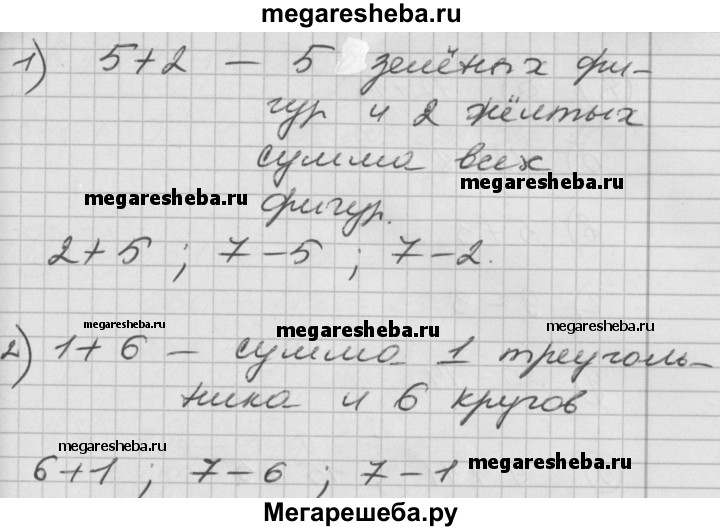 megaresheba.ru
1) 5+2 — 5 зелёных фи-
гур и 2 жёлтых
сумма всех
megaresheba.ru
megaresheba.ru
фигур.
2+5 ; 7-5 ; 7-2.
megaresheba.ru
megaresheba.ru
megaresheba.ru
2) 1+6 — сумма 1 треуголь-
ника и 6 кругов
megaresheba.ru
6+1 ; 7-6 ; 7-1
megaresheba.ru
Мегарешеба.ру